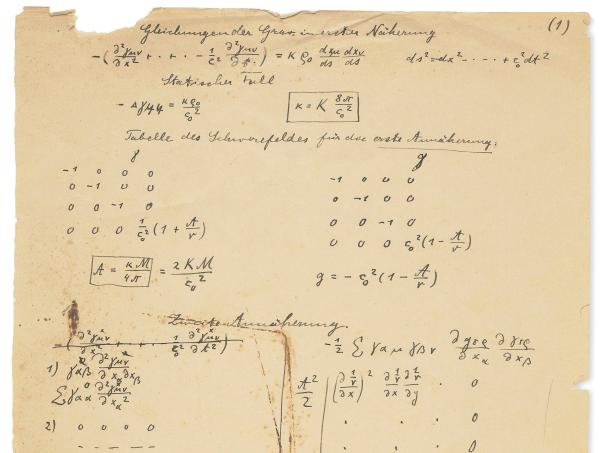 (1)
Gleichungen der Grav. in erster Näherung
−(∂²γμν/∂x² + · + · − 1/c₀² ∂²γμν/∂t²) = κ ρ₀ dxμ/ds dxν/ds   ds² = dx² − · · · · + c₀² dt²
Statischer Fall
− Δγ44 = κρ₀/c₀²   κ = K 8π/c₀²
Tabelle des Schwerefeldes für die erste Annäherung.
γ   g
−1 0 0 0   −1 0 0 0
0 −1 0 0   0 −1 0 0
0 0 −1 0   0 0 −1 0
0 0 0 1/c₀² (1 + A/r)   0 0 0 c₀² (1 − A/r)
A = κM/4π = 2KM/c₀²   g = − c₀² (1 − A/r)
Zweite Annäherung.
−(∂²γμν/∂x² + · + · 1/c₀² ∂²γμν/∂t²)   −½ Σ γαμ γβν ∂gτρ/∂xα ∂γτρ/∂xβ
1) γαβ ∂²γμν/∂xα∂xβ
Σ γαα ∂²γμν/∂xα²   A²/2 | (∂ 1/r/∂x)² ∂ 1/r/∂x ∂ 1/r/∂y · 0
· · · 0
2) 0 0 0 0   · · · 0
– – – –   0